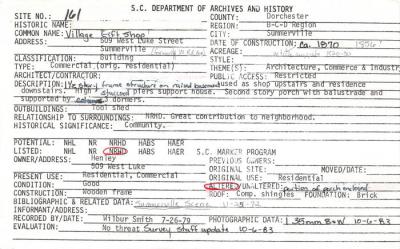 S.C. DEPARTMENT OF ARCHIVES AND HISTORY
SITE NO.: 161 COUNTY: Dorchester
HISTORIC NAME: REGION: B-C-D Region
COMMON NAME: Village Gift Shop CITY: Summerville
ADDRESS: 509 West Luke Street DATE OF CONSTRUCTION: ca. 1870
Summerville ACREAGE:
CLASSIFICATION: Building STYLE:
TYPE: Commercial (orig. residential) THEME(S): Architecture, Commerce & Industry
ARCHITECT/CONTRACTOR: PUBLIC ACCESS: Restricted
DESCRIPTION: 1½ story frame structure on raised basement used as shop upstairs and residence
downstairs. High stuccoed piers support house. Second story porch with balustrade and
supported by dormers.
OUTBUILDINGS: Tool shed
RELATIONSHIP TO SURROUNDINGS: NRHD. Great contribution to neighborhood.
HISTORICAL SIGNIFICANCE: Community.
POTENTIAL: NHL NR NRHD HABS HAER
LISTED: NHL NR NRHD HABS HAER S.C. MARKER PROGRAM
OWNER/ADDRESS: Henley PREVIOUS OWNERS:
509 West Luke ORIGINAL SITE: MOVED/DATE:
PRESENT USE: Residential, Commercial ORIGINAL USE: Residential
CONDITION: Good ALTERED/UNALTERED: portion of porch enclosed
CONSTRUCTION: Wooden frame ROOF: Comp. shingles FOUNDATION: Brick
BIBLIOGRAPHIC & RELATED DATA: Summerville Scene
INFORMANT/ADDRESS:
RECORDED BY/DATE: Wilbur Smith 7-26-79 PHOTOGRAPHIC DATA: 35mm B&W 10-6-83
EVALUATION: No threat Survey staff update 10-6-83